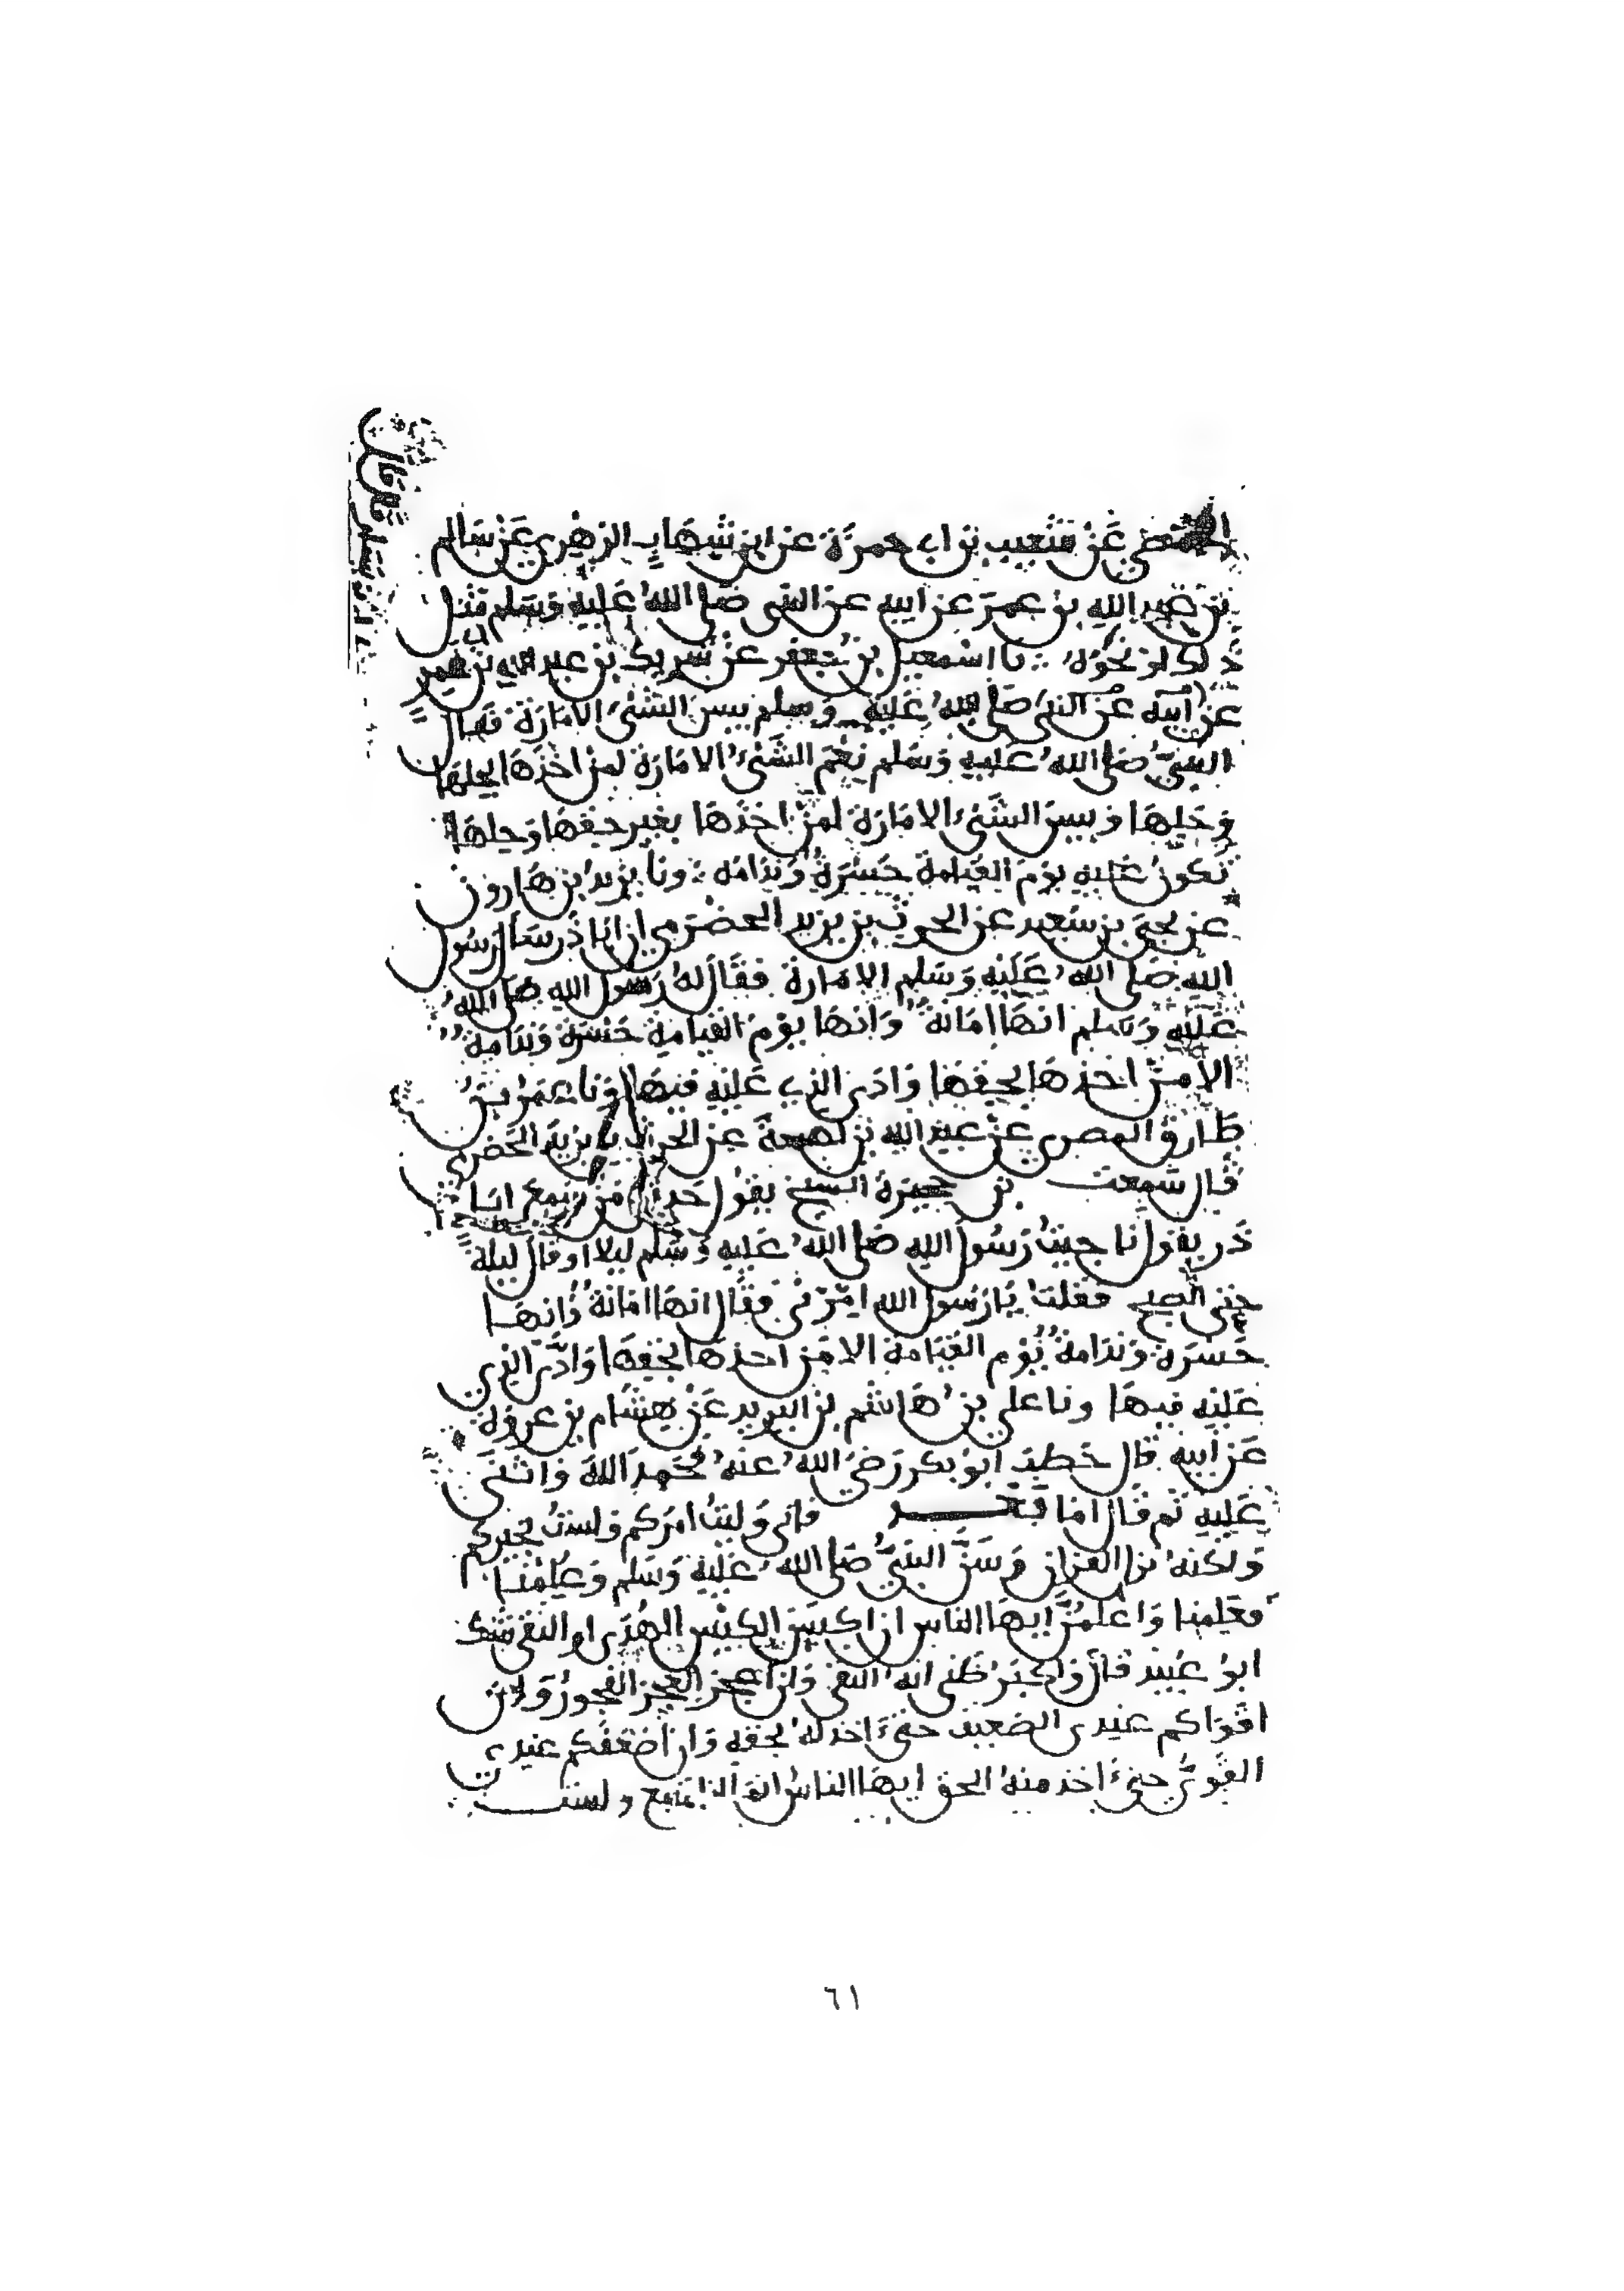 الحمصي عَنْ شُعيب بن ابي حمزَة عن ابن شهَابٍ الزهْري عَنْ سَالم
بن عبد الله بن عمرَ عن ابيه عن النبي صَلى اللهُ عَليهِ وَسَلم مثل
ذلك او نحوَهُ نا اسْمعيل بن جعفر عن شريك بن عبد الله بن
عن ابيه عن النبي صَلى الله عَليهِ وَسلم بيسَ الشَّيْءُ الامَارَة فقال
النبيُّ صَلى اللهُ عَليهِ وَسَلم نِعْمَ الشَّيْءُ الامَارَة لمن اخذَهَا بحلهَا
وَحَقهَا وبيسَ الشَّيْءُ الامَارَة لمن اخذَهَا بغير حقهَا وَحلهَا
تكونُ عَليهِ يوْمَ القيَامة حَسْرَةً وَندَامَة ونا يزيد بن هَارون
عن يحيى بن سَعيد عن الحرث بن يزيد الحضْرَمي ان ابا ذَر سَأل رَسُول
اللهِ صَلى اللهُ عَليْهِ وَسَلم الامَارة فقَال لهُ رَسُول اللهِ صَلى اللهُ
عَليْهِ وَسَلم انهَا امَانة وَانهَا يوْمَ القيامةِ حَسْرَة وَندَامة
الا منْ اخذهَا بحقهَا وَادى الذي عَليْهِ فيهَا ونا عمرُ بنُ
طَارق المصري عنْ عبد اللهِ بن لهيعة عن الحرث بن يزيدَ الحضرمي
قال سَمعت بن حجيرَة الشيخ يقول حَدثني مَنْ سَمعَ ابَا
ذَر يقول انا جيتُ رَسُول اللهِ صَلى اللهُ عَليهِ وَسَلم ليلا او قال ليلةً
حَتى الصبح فقلتُ يَا رَسُول الله امّرْني فقَال انهَا امَانةٌ وَانهَا
حَسرَة وَندَامة يوْم القيَامَة الا مَنْ اخذهَا بحقهَا وَادَّى الذي
عَليْهِ فيهَا ونا علي بن هَاشم بن البريد عَنْ هِشَام بن عروَة
عَن ابيهِ قال خطبَ ابوُ بكر رَضيَ اللهُ عنهُ فحَمِدَ اللهَ وَاثنى
عَليهِ ثم قال امَا بعد فاني وَليتُ امرَكم ولستُ بخيركم
وَلكنهُ نزل القرانُ وَسَنَّ النبيُّ صَلى اللهُ عَليْهِ وَسَلم وَعَلمْنا
فعَلمنا وَاعلمُنَّ ايهَا الناس ان اكيسَ الكيْسِ الهُدَى او التقى شك
ابوُ عُبيد قال وَاكبَرُ ظَني انهُ التقى وَان اعجزَ العجز الفجورُ وَان
اقوَاكم عندي الضعيف حتى اخذ لهُ بحقه وَان اضعَفكم عندي
القويُّ حتى اخذ منهُ الحق ايهَا الناسُ انما انا متبع ولست
٦١